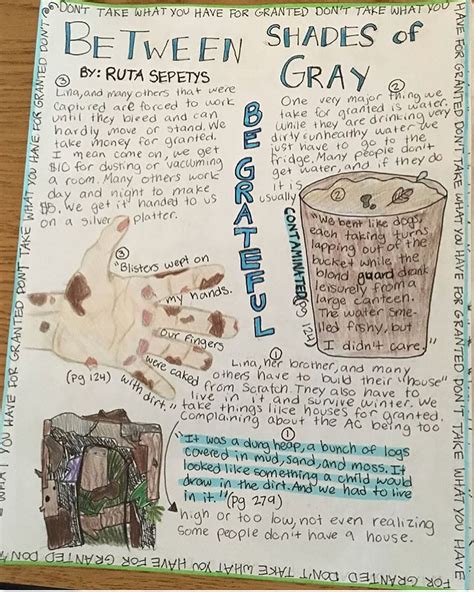 DON'T TAKE WHAT YOU HAVE FOR GRANTED DON'T TAKE WHAT YOU
HAVE FOR GRANTED DON'T TAKE WHAT YOU HAVE FOR GRANTED DON'T TAKE WHAT YOU HAVE
GRANTED DON'T TAKE WHAT YOU HAVE FOR GRANTED DON'T TAKE WHAT YOU HAVE
WHAT YOU HAVE FOR GRANTED DON'T TAKE WHAT YOU HAVE FOR GRANTED DON'T
BETWEEN SHADES of
GRAY
BY: RUTA SEPETYS
BE GRATEFUL
③
Lina, and many others that were
captured are forced to work
until they bleed and can
hardly move or stand. We
take money for granted.
I mean come on, we get
$10 for dusting or vacuming
a room. Many others work
day and night to make
$5. We get it handed to us
on a silver platter.
②
One very major thing we
take for granted is water.
While they are drinking very
dirty, sunhealthy water we
just have to go to the
fridge. Many people don't
get water, and if they do
it is
usually
CONTAMINATED
②
"We bent like dogs,
each taking turns
lapping out of the
bucket while the
blond guard drank
leisurely from a
large canteen.
The water sme-
lled fishy, but
I didn't care."
(pg 124)
③
"Blisters wept on
my hands.
Our fingers
were caked
with dirt."
(pg 124)
①
Lina, her brother, and many
others have to build their "house"
from scratch. They also have to
live in it and survive winter. We
take things like houses for granted.
Complaining about the AC being too
①
"It was a dung heap, a bunch of logs
covered in mud, sand, and moss. It
looked like something a child would
draw in the dirt. And we had to live
in it." (pg 279)
high or too low, not even realizing
some people don't have a house.